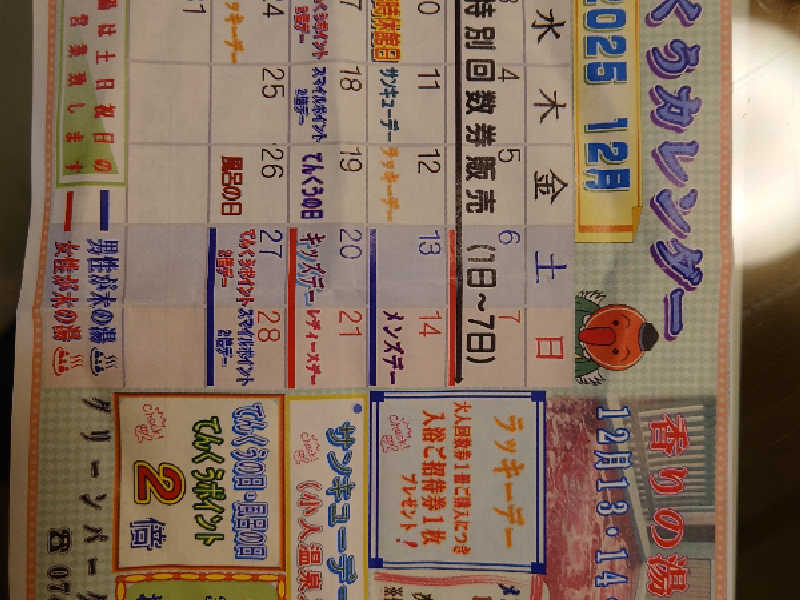 くうカレンダー
2025 12月
水 木 金 土 日
4 5 6 7
特別回数券販売 (1日～7日)
10 11 12 13 14
サンキューデー ラッキーデー メンズデー
17 18 19 20 21
くうポイント 2倍デー
スマイルポイント 2倍デー
てんくうの日
キッズデー
レディースデー
24 25 26 27 28
ラッキーデー
風呂の日
てんくうポイント 2倍デー
スマイルポイント 2倍デー
31
は土日祝日の
営業致します
男性が木の湯
女性が木の湯
香りの湯
12月13・14
ラッキーデー
大人回数券1冊ご購入につき
入浴ご招待券1枚
プレゼント!
サンキューデー
(小人温泉
てんくうの日・風呂の日
てんくうポイント
2倍
グリーンパーク
☎07